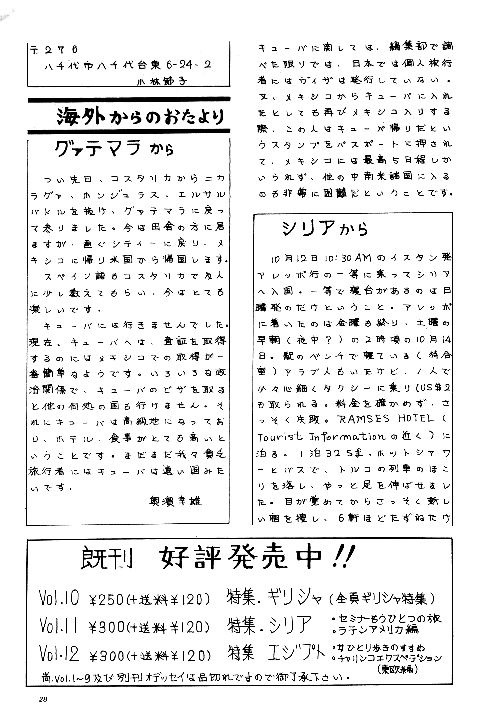 〒276
八千代市八千代台東6-24-2
小林節子
海外からのおたより
グァテマラから
つい先日、コスタリカからニカ
ラグァ、ホンジュラス、エルサル
バドルを抜け、グァテマラに戻っ
て参りました。今は田舎の方に居
ますが、直ぐシティーに戻り、メ
キシコに帰り米国から帰国します。
スペイン語もコスタリカで友人
に少し教えてもらい、今はとても
楽しいです。
キューバには行きませんでした。
現在、キューバへは、査証を取得
するのにはメキシコでの取得が一
番簡単なようです。いろいろな政
治関係で、キューバのビザを取る
と他の何処の国も行けません。そ
れにキューバは高級地になってお
り、ホテル、食事がとても高いと
いうことです。まだまだ我々貧乏
旅行者にはキューバは遠い国みた
いです。
奥澤幸雄
キューバに関しては、編集部で調
べた限りでは、日本では個人旅行
者にはガイザは発行していない。
又、メキシコからキューバに入れ
たとしても再びメキシコ入りする
際、この人はキューバ帰りだとい
うスタンプをパスポートに押され
て、メキシコには最高5日程しか
いられず、他の中南米諸国に入る
のも非常に困難だということです。
シリアから
10月12日10:30AMのイスタン発
アレッポ行の一等に乗ってシリア
へ入国。一等で寝台があるのは日
曜発のだけということ。アレッポ
に着いたのは金曜も終り、土曜の
早朝(夜中?)の2時頃の10月14
日。駅のベンチで寝ている(待合
室)アラブ人もいたけど、1人で
少々心細くタクシーに乗り(US$2
も取られる。料金を確かめず、さ
っそく失敗。RAMSES HOTEL(
Tourist Informationの近く)に
泊る。1泊32S£、ホットシャワ
ーとバスで、トルコの列車のほこ
りを落し、やっと足を伸ばせまし
た。目が覚めてからさっそく新し
い宿を捜し、6軒ほどたずねたワ
既刊 好評発売中!!
Vol.10 ¥250(+送料¥120) 特集.ギリシャ(全頁ギリシャ特集)
Vol.11 ¥300(+送料¥120) 特集.シリア ・セミナーもうひとつの旅 ・ラテンアメリカ編
Vol.12 ¥300(+送料¥120) 特集 エジプト ・女ひとり歩きのすすめ ・チャリンコエクスペディション(東欧編)
尚、Vol.1~9及び別刊オデッセイは品切れですので御了承下さい。
28